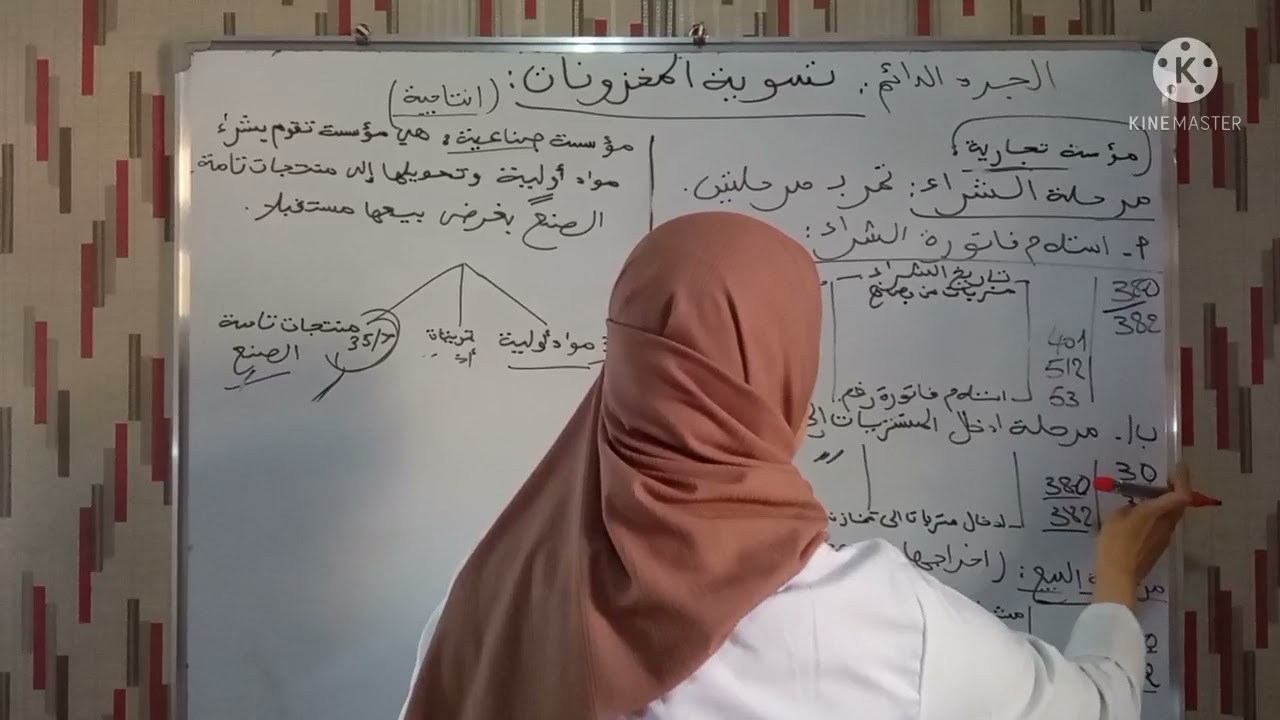 الجرد الدائم: تسوية المخزونات:
مؤسسة تجارية:
مرحلة الشراء: تمر بـ مرحلتين.
أ- استلام فاتورة الشراء:
تاريخ الشراء
380
مشتريات من بضائع
382
401
512
53
استلام فاتورة رقم
ب/. مرحلة ادخال المشتريات إلى
30
380
382
ادخال مشتريات الى
البيع: (اخراجها
(انتاجية)
مؤسسة صناعية: هي مؤسسة تقوم بشراء
مواد أولية وتحويلها إلى منتجات تامة
الصنع بغرض بيعها مستقبلا.
مواد أولية
تموينات
أخـ
منتجات تامة
الصنع
35/7
K
KINEMASTER